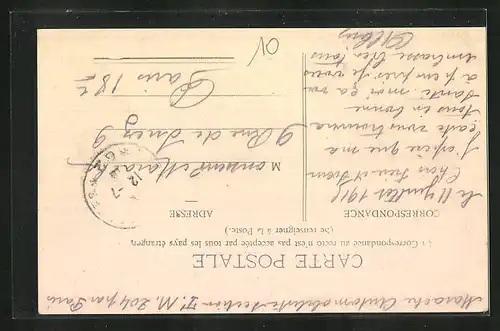 Marache Automobiliste Section T. M. 204 par Paris
CARTE POSTALE
(La Correspondance au recto n'est pas acceptée par tous les pays étrangers.
(Se renseigner à la Poste.)
CORRESPONDANCE
ADRESSE
Le 11 Juillet 1915
Chers
J'espère que ma
carte vous trouvera
tous en bonne
santé. moi ça va
à peu près. je vous
embrasse bien tous
Monsieur
9 Rue de
Paris 18e
12 -7